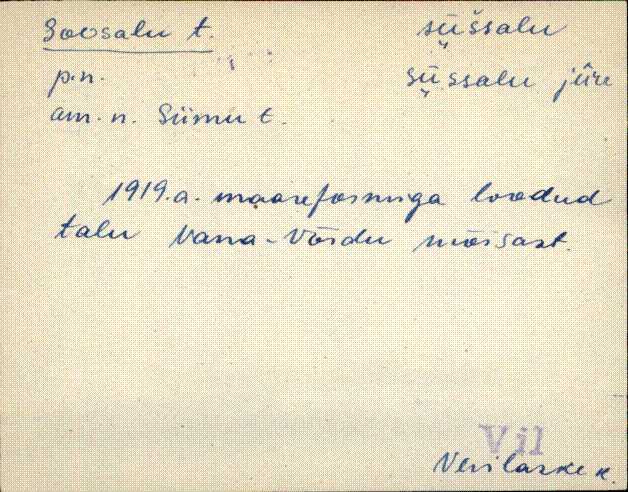 Soosalu t. süššalu
p.n. süssalu jüre
am. n. Siimu t.
1919.a. maareformiga loodud
talu Vana-Võidu mõisast.
Vil
Verilaske k.